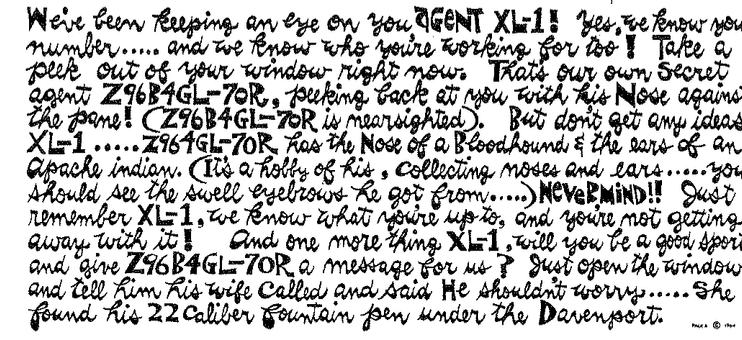 We've been keeping an eye on you AGENT XL-1! Yes, we know you
number..... and we know who you're working for too! Take a
peek out of your window right now. That's our own Secret
agent Z96B4GL-70R, peeking back at you with his Nose against
the pane! (Z96B4GL-70R is nearsighted). But don't get any ideas
XL-1.....Z964GL-70R has the Nose of a Bloodhound & the ears of an
Apache indian. (It's a hobby of his, collecting noses and ears.....you
should see the swell eyebrows he got from.....) NEVERMIND!! Just
remember XL-1, we know what you're up to, and you're not getting
away with it! And one more thing XL-1, will you be a good sport
and give Z96B4GL-70R a message for us? Just open the window
and tell him his wife called and said He shouldn't worry.....She
found his 22 Caliber Fountain pen under the Davenport.
© 1964